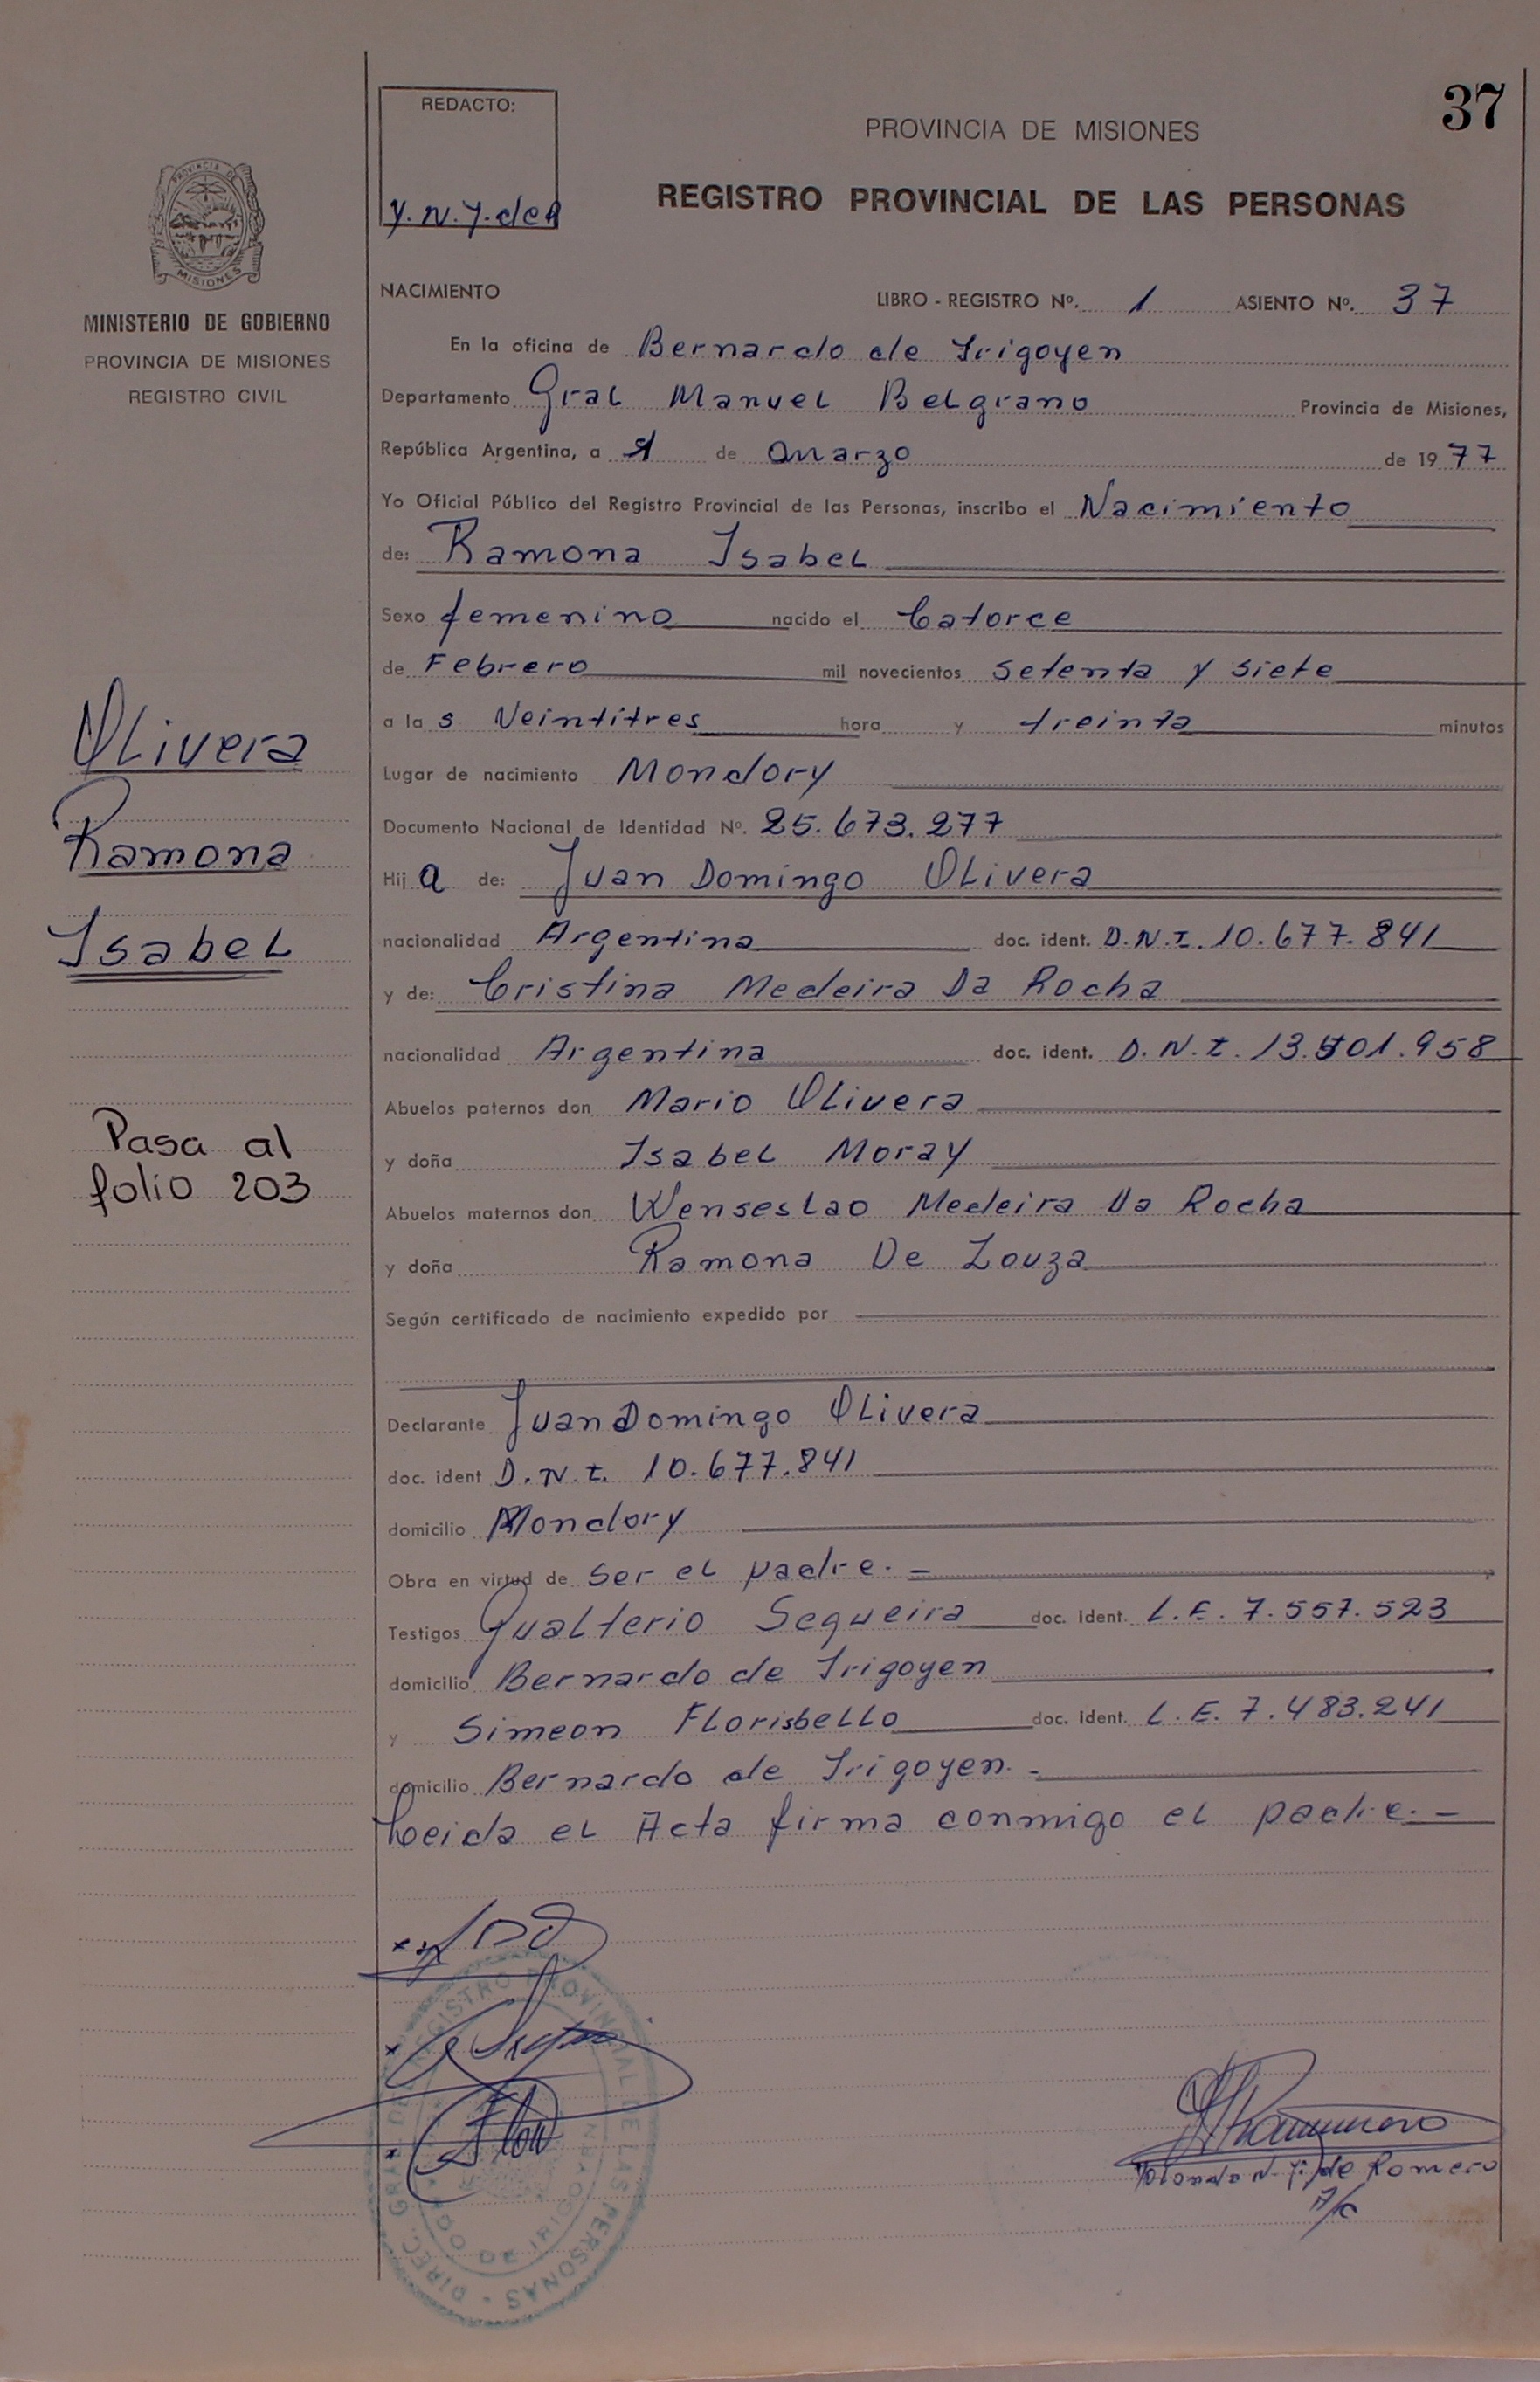 37
REDACTO:
Y. N. Y. de R
PROVINCIA DE MISIONES
REGISTRO PROVINCIAL DE LAS PERSONAS
PROVINCIA DE
MISIONES
MINISTERIO DE GOBIERNO
PROVINCIA DE MISIONES
REGISTRO CIVIL
NACIMIENTO LIBRO - REGISTRO Nº. 1 ASIENTO Nº. 37
En la oficina de Bernardo de Irigoyen
Departamento Gral Manuel Belgrano Provincia de Misiones,
República Argentina, a de Marzo de 1977
Yo Oficial Público del Registro Provincial de las Personas, inscribo el Nacimiento
de: Ramona Isabel
Sexo femenino nacido el Catorce
de Febrero mil novecientos setenta y siete
a las Veintitres hora y treinta minutos
Lugar de nacimiento Mondory
Documento Nacional de Identidad Nº. 25.673.277
Hija de: Juan Domingo Olivera
nacionalidad Argentina doc. ident. D.N.I. 10.677.841
y de: Cristina Medeira Da Rocha
nacionalidad Argentina doc. ident. D.N.I.
Abuelos paternos don Mario Olivera
y doña Isabel Moray
Abuelos maternos don Wenseslao Medeira Da Rocha
y doña Ramona De Zouza
Según certificado de nacimiento expedido por
Declarante Juan Domingo Olivera
doc. ident D.N.I. 10.677.841
domicilio Mondory
Obra en virtud de ser el padre.-
Testigos Gualterio Sequeira doc. Ident. L.E. 7.557.523
domicilio Bernardo de Irigoyen
y Simeon Florisbello doc. Ident. L.E. 7.483.241
domicilio Bernardo de Irigoyen.-
Leida el Acta firma conmigo el padre.-
Olivera
Ramona
Isabel
Pasa al
folio 203
DIREC. GRAL. DEL REGISTRO PROVINCIAL DE LAS PERSONAS
DE IRIGOYEN
Yolanda N. Y. de Romero
A/C